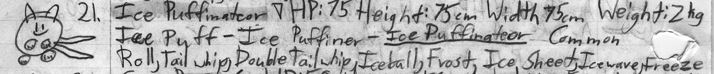 21. Ice Puffinateor ∇ HP: 75 Height: 75cm Width 75cm Weight: 2kg
Ice Puff - Ice Puffiner - Ice Puffinateor Common
Roll, Tail whip, Double Tail whip, Iceball, Frost, Ice Sheet, Icewave, Freeze